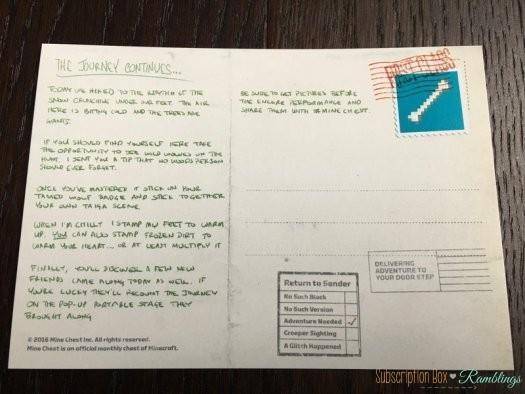 THE JOURNEY CONTINUES...
TODAY WE HIKED TO THE RHYTHM OF THE
SNOW CRUNCHING UNDER OUR FEET. THE AIR
HERE IS BITING COLD AND THE TREES ARE
GIANTS.
IF YOU SHOULD FIND YOURSELF HERE TAKE
THE OPPORTUNITY TO SEE WILD WOLVES ON THE
HUNT. I SENT YOU A TIP THAT NO WOODS PERSON
SHOULD EVER FORGET.
ONCE YOU'VE MASTERED IT STICK ON YOUR
TAMED WOLF BADGE AND STICK TOGETHER
YOUR OWN TAIGA SCENE.
WHEN I'M CHILLY I STAMP MY FEET TO WARM
UP. YOU CAN ALSO STAMP FROZEN DIRT TO
WARM YOUR HEART... OR AT LEAST MULTIPLY IT
FINALLY, YOU'LL DISCOVER A FEW NEW
FRIENDS CAME ALONG TODAY AS WELL. IF
YOU'RE LUCKY THEY'LL RECOUNT THE JOURNEY
ON THE POP-UP PORTABLE STAGE THEY
BROUGHT ALONG
© 2016 Mine Chest Inc. All rights reserved.
Mine Chest is an official monthly chest of Minecraft.
BE SURE TO GET PICTURES BEFORE
THE ENCORE PERFORMANCE AND
SHARE THEM WITH #MINECHEST.
DELIVERING
ADVENTURE TO
YOUR DOOR STEP
Return to Sender
No Such Block
No Such Version
Adventure Needed ✓
Creeper Sighting
A Glitch Happened
Subscription Box ♥ Ramblings